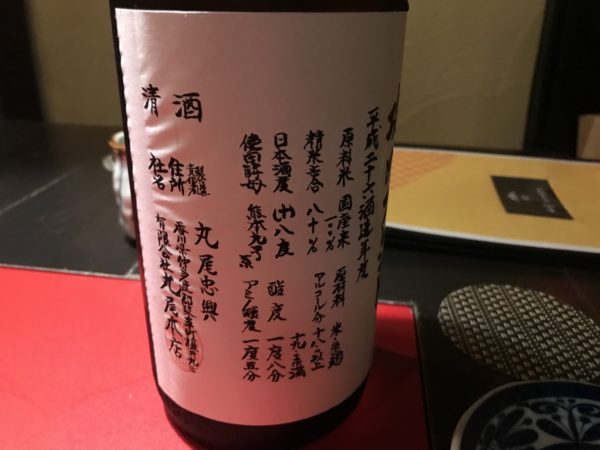 平成二十六酒造年度
原料米 国産米一〇〇%
原材料 米・米麹
精米歩合 八十%
アルコール分 十八以上十九未満
日本酒度 (+)八度
酸度 一度八分
使用酵母 熊本九号系
アミノ酸度 一度五分
製造責任者 丸尾忠興
住所 香川県仲多度郡琴平町榎井九三
社名 有限会社丸尾本店
清酒